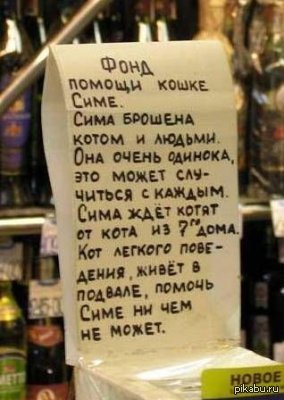 Фонд
помощи кошке
Симе.
Сима брошена
котом и людьми.
Она очень одинока,
это может слу-
читься с каждым.
Сима ждёт котят
от кота из 7го дома.
Кот легкого пове-
дения, живёт в
подвале, помочь
Симе ни чем
не может.
НОВОЕ
pikabu.ru